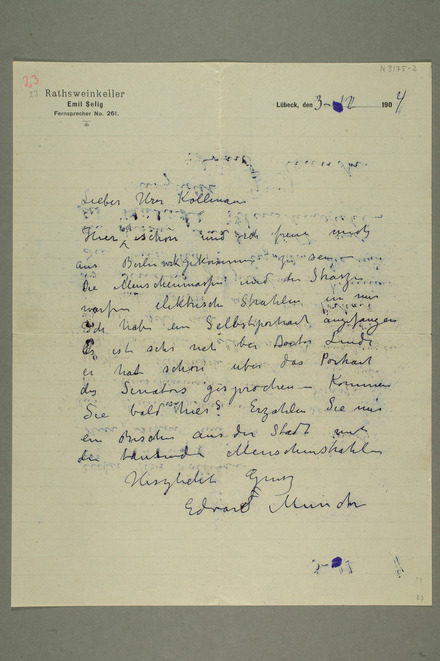 N 3175-2
23
23
Rathsweinkeller
Emil Selig
Fernsprecher No. 261.
Lübeck, den 3- 1904
Lieber Herr Kollmann
Hier ist schön und ich freue mich
aus Berlin zu sein
Die Menschenmassen und die Strasse
warfen elektrische Strahlen in mir
Ich habe ein Selbstportrait angefangen
Es ist sehr nett bei Doctor Linde
er hat schon über das Portrait
des Senators gesprochen – Kommen
Sie bald hier? Erzahlen Sie mir
ein Bischen aus der Stadt mit
die tausende Menschenstrahlen
Herzlichst Gruss
Edvard Munch